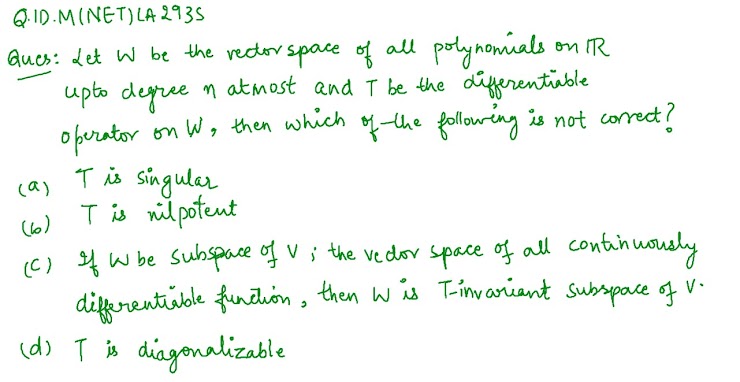 Q.ID.M(NET)LA293S
Ques: Let W be the vector space of all polynomials on IR
upto degree n atmost and T be the differentiable
operator on W, then which of the following is not correct?
(a) T is singular
(b) T is nilpotent
(c) If W be subspace of V; the vector space of all continuously
differentiable function, then W is T-invariant subspace of V.
(d) T is diagonalizable